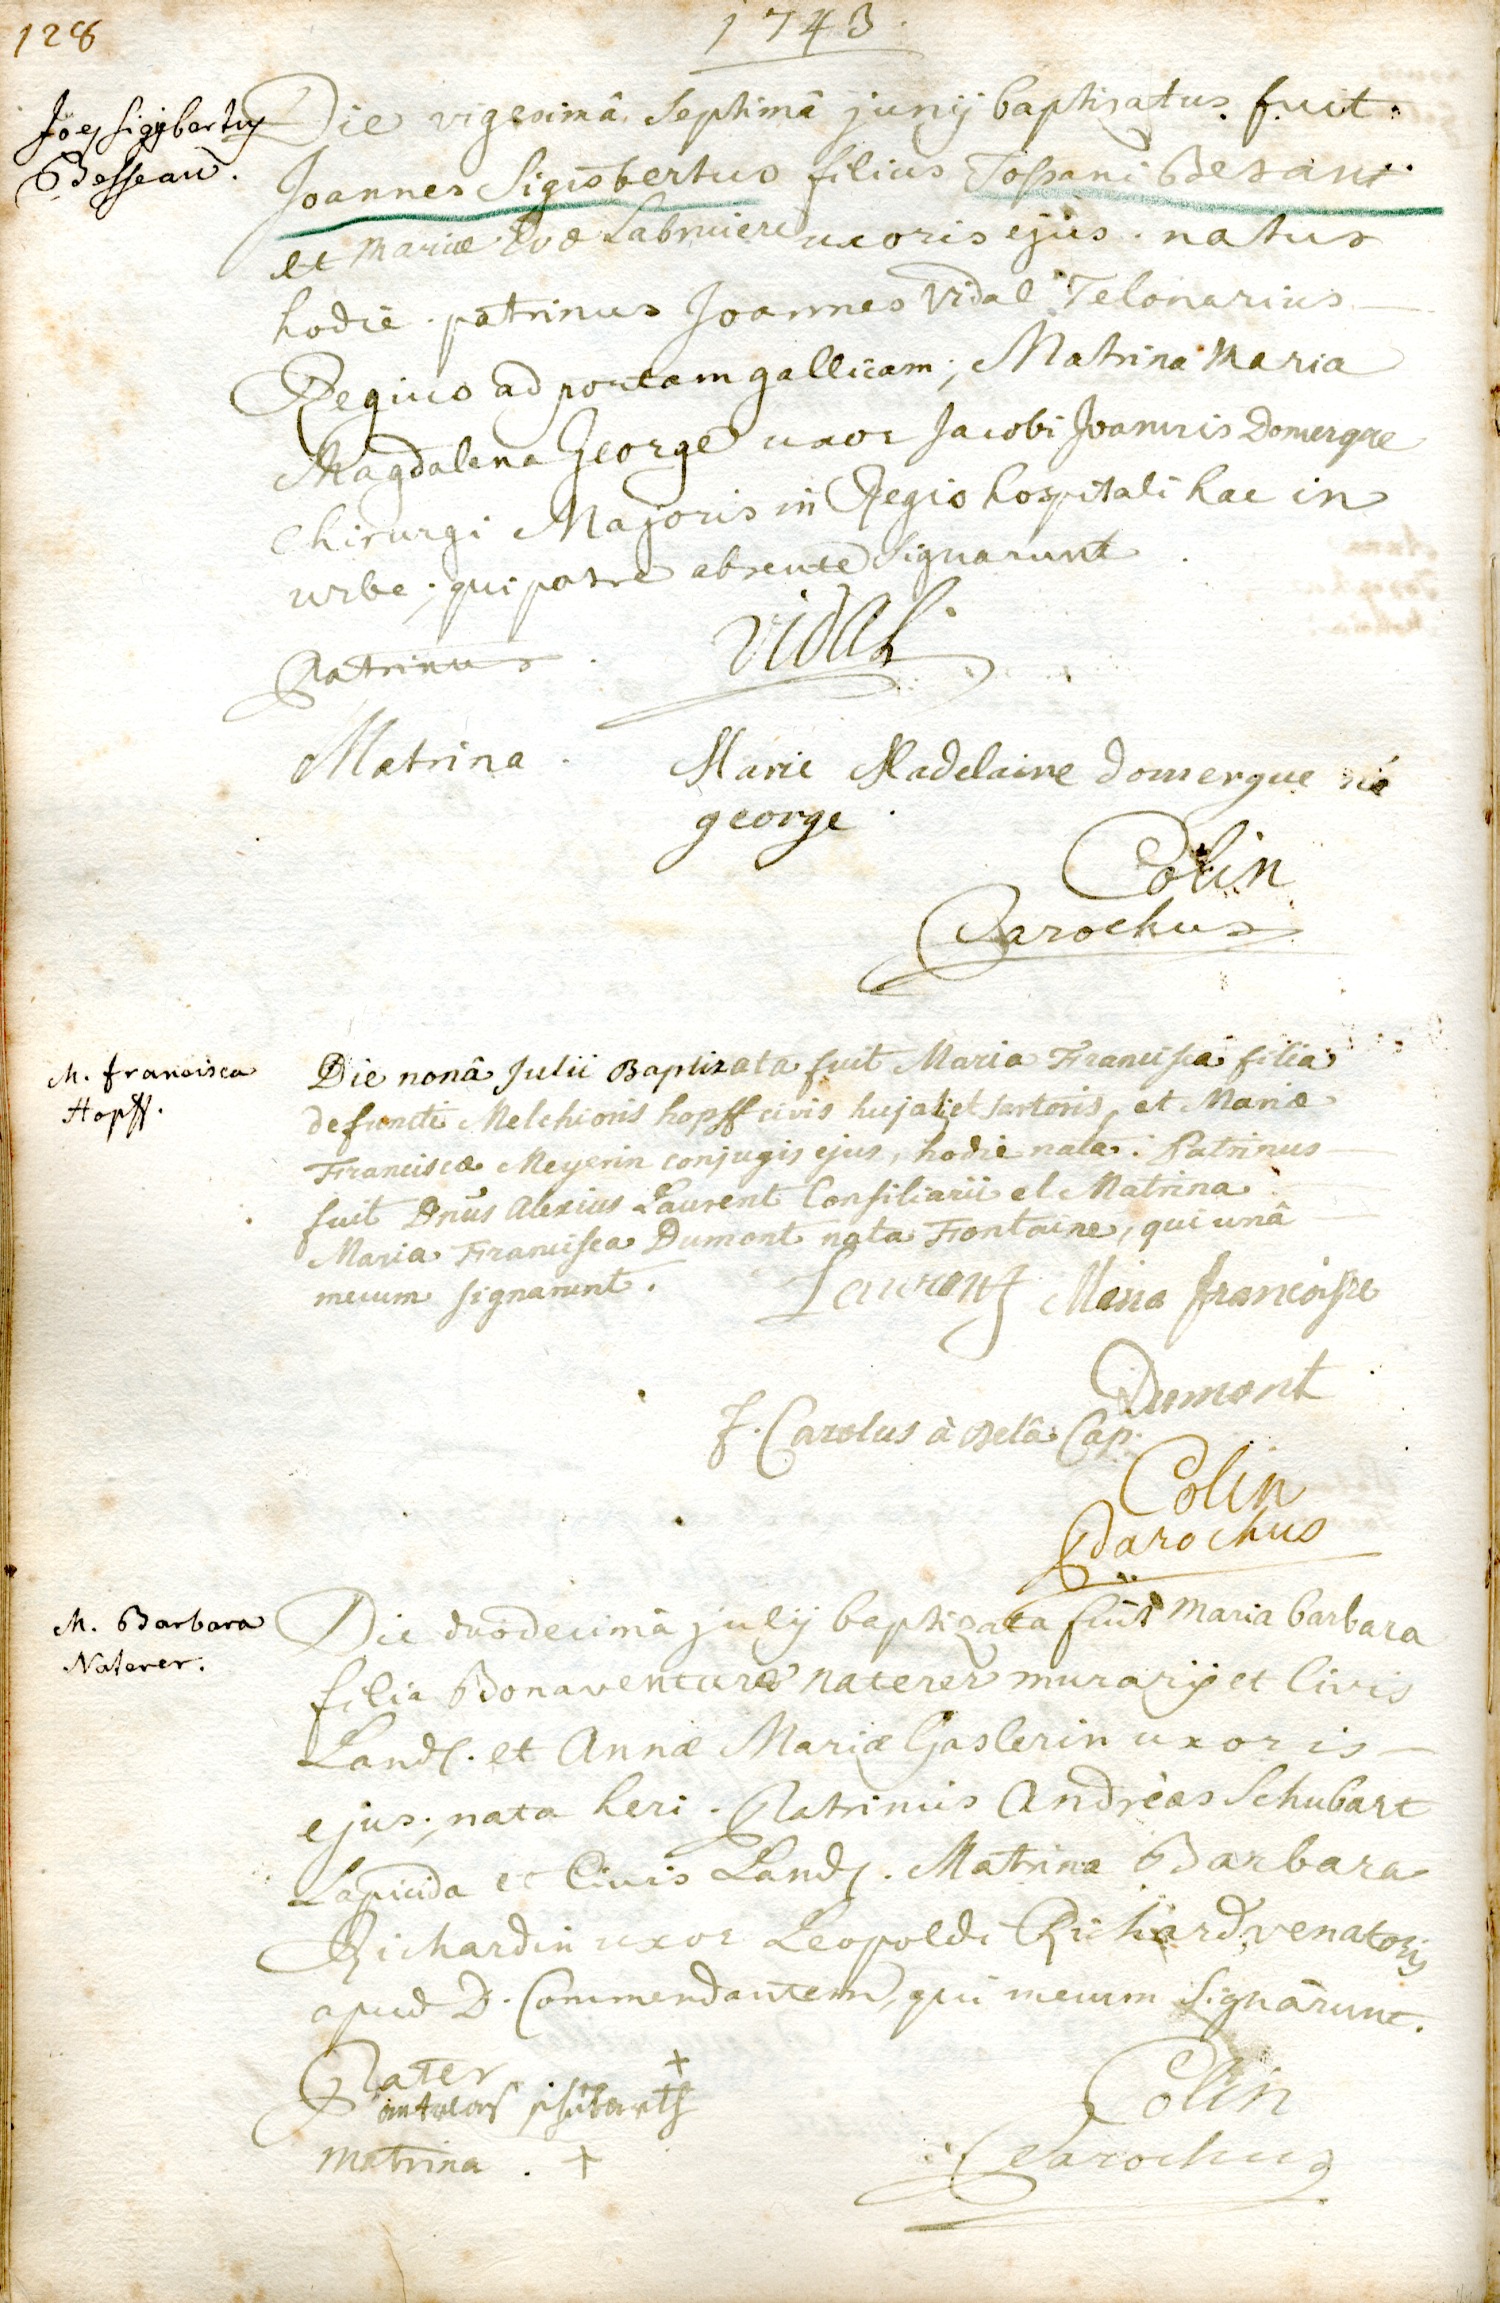 128
1743.
Joes Sigybertus
Besseau.
Die vigesimâ septimâ junij baptisatus fuit
Joannes Sigisbertus filius Tossani Besant
et Mariæ Evæ Labruiere uxoris ejus. natus
hodie. patrinus Joannes Vidal Telonarius
Regius ad portam gallicam; Matrina Maria
Magdalena George uxor Jacobi Joannis Domergue
Chirurgi Majoris in Regio hospitali hac in
urbe; qui patre absente signarunt
Patrinus. Vidal
Matrina. Marie Madelaine domergue né
george.
Colin
Parochus
M. francisca
Hopff.
Die nonâ Julii Baptizata fuit Maria Francisca filia
defuncti Melchioris hopff civis hujatis et sartoris, et Mariæ
Franciscæ Meyerin conjugis ejus, hodie nata. Patrinus
fuit Dnus Alexius Laurent Consiliarii et Matrina
Maria Francisca Dumont nata Fontaine, qui unâ
mecum signarunt. Laurent Maria francoisse
Dumont
f. Carolus à Cap.
Colin
Parochus
M. Barbara
Naterer.
Die duodecimâ julij baptizata fuit Maria barbara
filia Bonaventuræ naterer murarij et Civis
Land. et Annæ Mariæ Gaslerin uxoris
ejus; nata heri. Patrinus Andreas Schubart
Lapicida et Civis Land. Matrina Barbara
Richardin uxor Leopoldi Richard venatoris
apud D. Commendantem, qui mecum signârunt.
Pater +
Matrina. +
Colin
Parochus